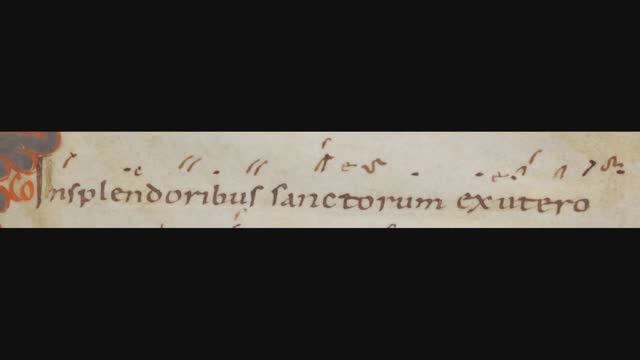 CO Insplendoribus sanctorum exutero